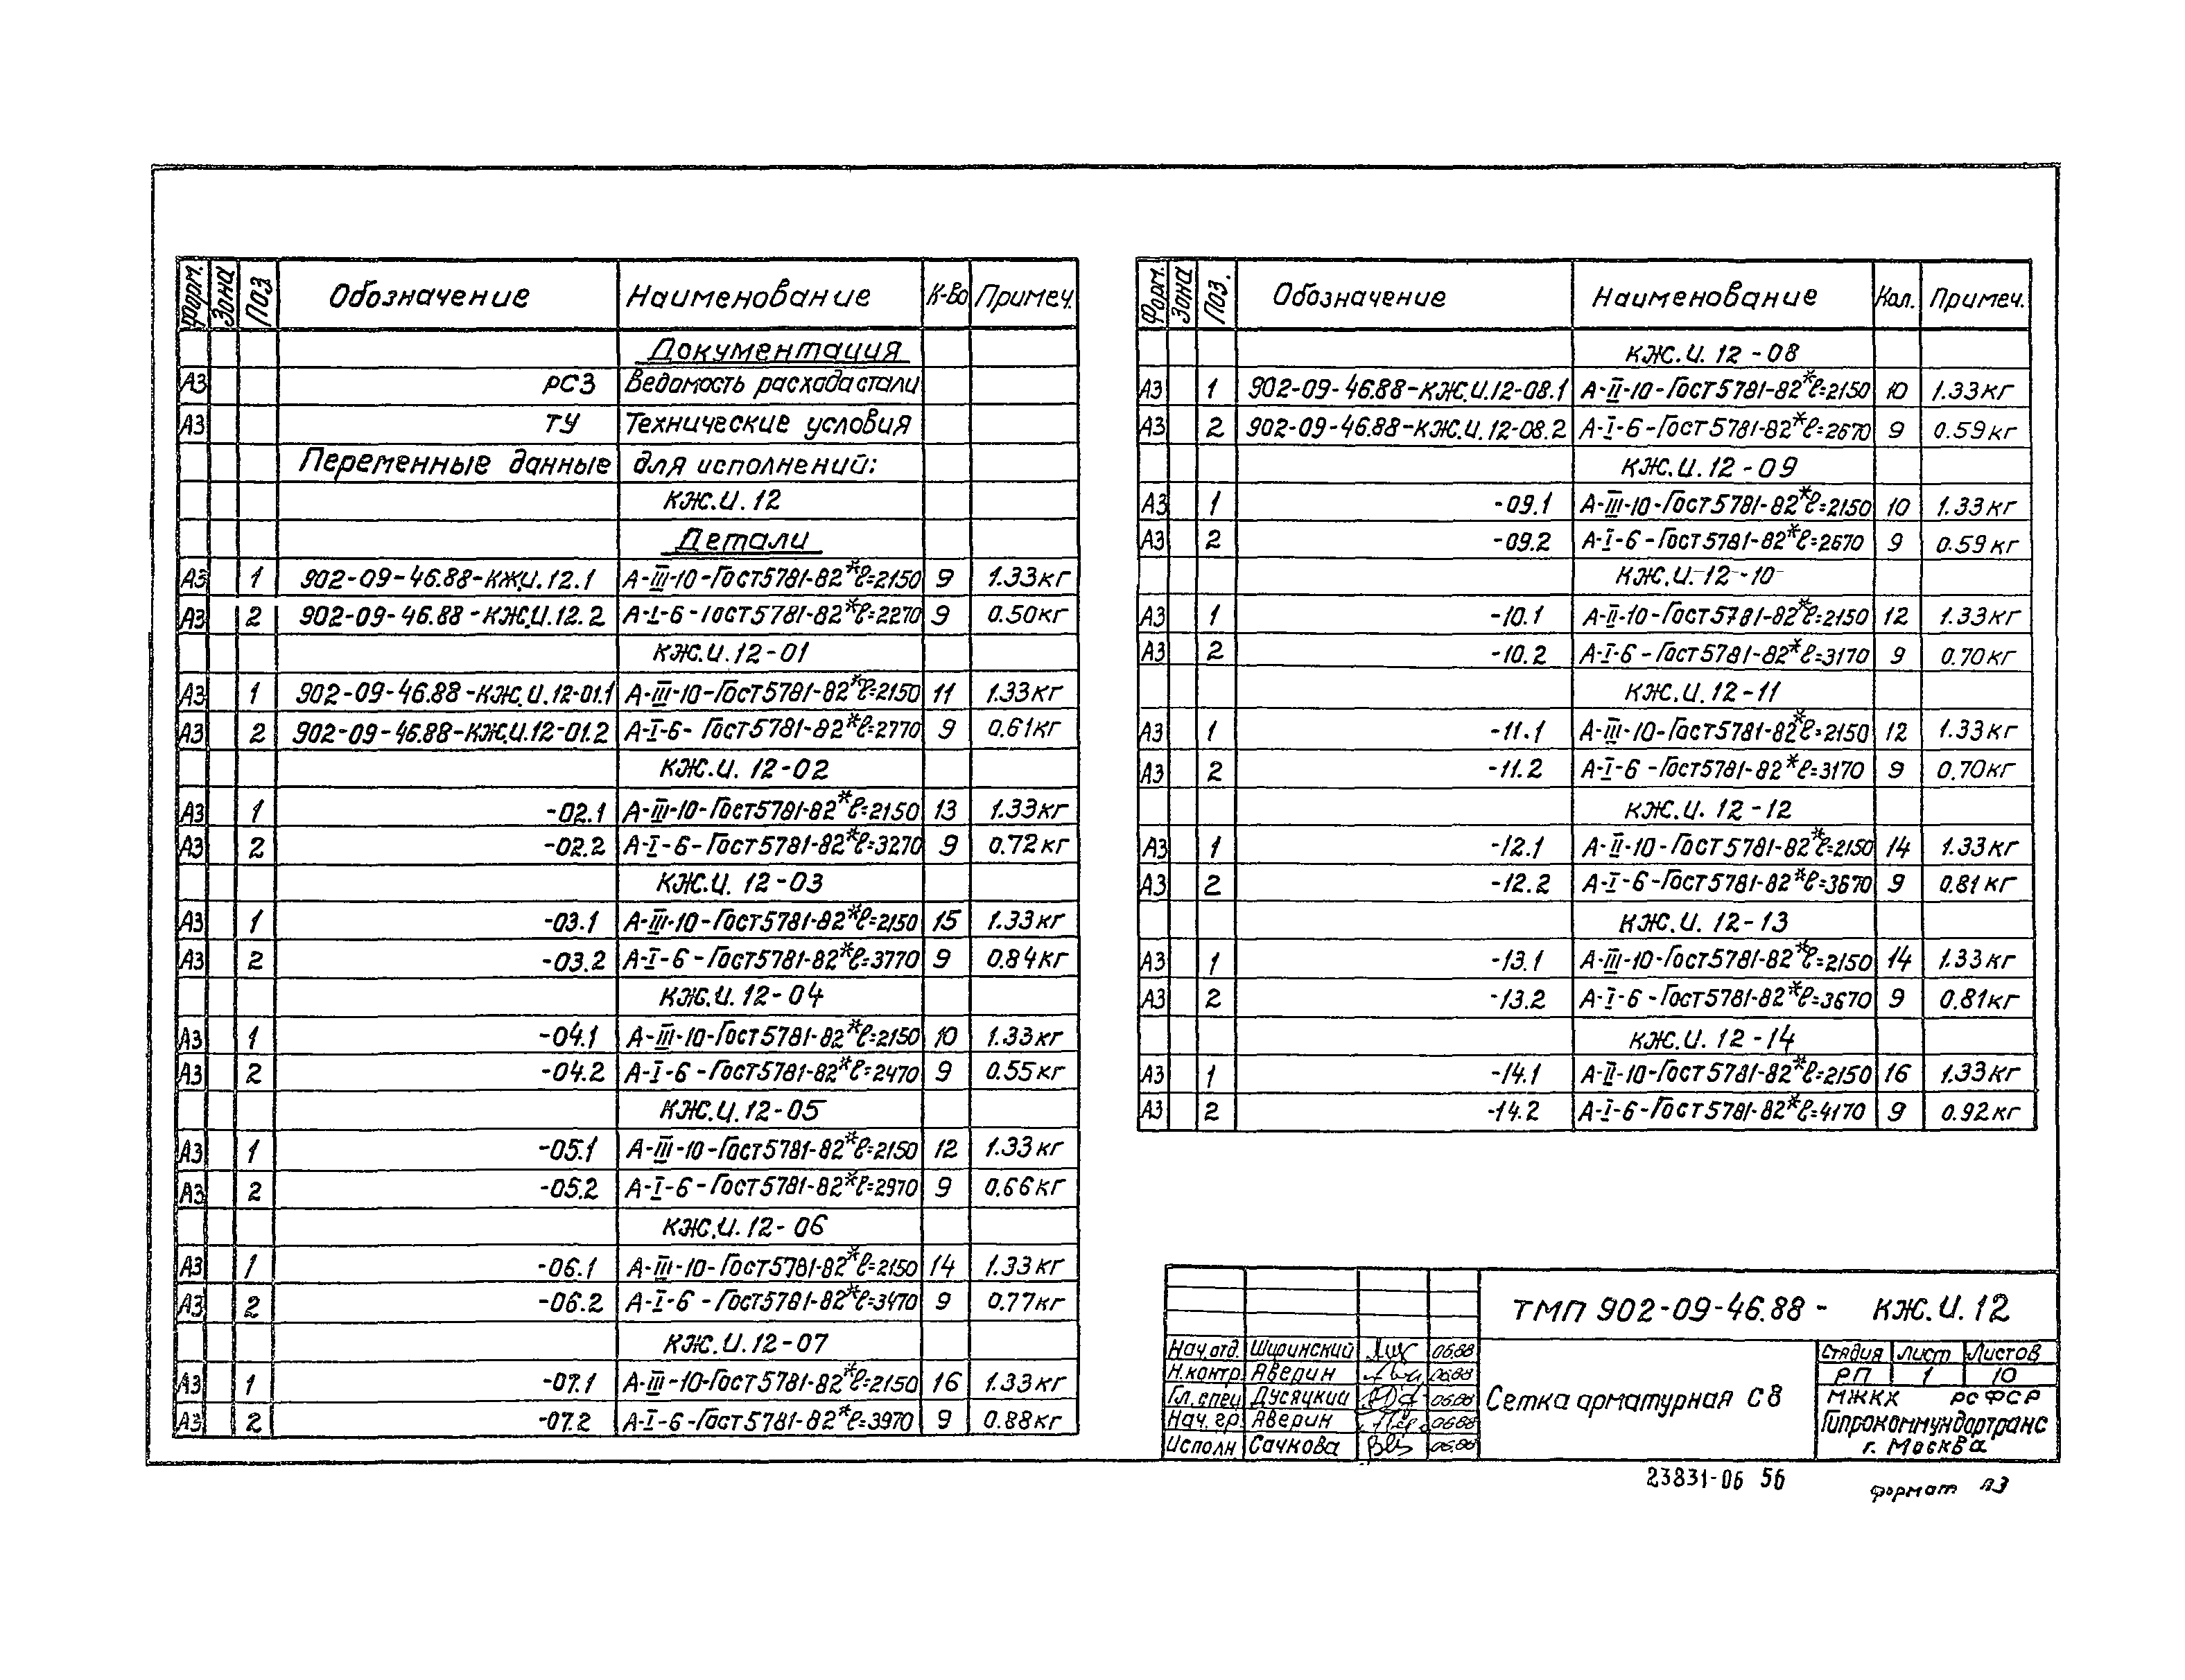 Форм. Зона Поз Обозначение Наименование К-во Примеч.
Документация
А3 РС3 Ведомость расхода стали
А3 ТУ Технические условия
Переменные данные для исполнений:
КЖ.И.12
Детали
А3 1 902-09-46.88-КЖИ.12.1 А-III-10-Гост5781-82* ℓ=2150 9 1.33кг
А3 2 902-09-46.88-КЖ.И.12.2 А-I-6-Гост5781-82* ℓ=2270 9 0.50кг
КЖ.И.12-01
А3 1 902-09-46.88-КЖ.И.12-01.1 А-III-10-Гост5781-82* ℓ=2150 11 1.33кг
А3 2 902-09-46.88-КЖ.И.12-01.2 А-I-6-Гост5781-82* ℓ=2770 9 0.61кг
КЖ.И. 12-02
А3 1 -02.1 А-III-10-Гост5781-82* ℓ=2150 13 1.33кг
А3 2 -02.2 А-I-6-Гост5781-82* ℓ=3270 9 0.72кг
КЖ.И. 12-03
А3 1 -03.1 А-III-10-Гост5781-82* ℓ=2150 15 1.33кг
А3 2 -03.2 А-I-6-Гост5781-82* ℓ=3770 9 0.84кг
КЖ.И.12-04
А3 1 -04.1 А-III-10-Гост5781-82* ℓ=2150 10 1.33кг
А3 2 -04.2 А-I-6-Гост5781-82* ℓ=2470 9 0.55кг
КЖ.И.12-05
А3 1 -05.1 А-III-10-Гост5781-82* ℓ=2150 12 1.33кг
А3 2 -05.2 А-I-6-Гост5781-82* ℓ=2970 9 0.66кг
КЖ.И.12-06
А3 1 -06.1 А-III-10-Гост5781-82* ℓ=2150 14 1.33кг
А3 2 -06.2 А-I-6-Гост5781-82* ℓ=3470 9 0.77кг
КЖ.И.12-07
А3 1 -07.1 А-III-10-Гост5781-82* ℓ=2150 16 1.33кг
А3 2 -07.2 А-I-6-Гост5781-82* ℓ=3970 9 0.88кг
Форм. Зона Поз. Обозначение Наименование Кол. Примеч.
КЖ.И. 12-08
А3 1 902-09-46.88-КЖ.И.12-08.1 А-II-10-Гост5781-82* ℓ=2150 10 1.33кг
А3 2 902-09-46.88-КЖ.И.12-08.2 А-I-6-Гост5781-82* ℓ=2670 9 0.59кг
КЖ.И.12-09
А3 1 -09.1 А-III-10-Гост5781-82* ℓ=2150 10 1.33кг
А3 2 -09.2 А-I-6-Гост5781-82* ℓ=2670 9 0.59кг
КЖ.И.12-10
А3 1 -10.1 А-II-10-Гост5781-82* ℓ=2150 12 1.33кг
А3 2 -10.2 А-I-6-Гост5781-82* ℓ=3170 9 0.70кг
КЖ.И.12-11
А3 1 -11.1 А-III-10-Гост5781-82* ℓ=2150 12 1.33кг
А3 2 -11.2 А-I-6-Гост5781-82* ℓ=3170 9 0.70кг
КЖ.И. 12-12
А3 1 -12.1 А-II-10-Гост5781-82* ℓ=2150 14 1.33кг
А3 2 -12.2 А-I-6-Гост5781-82* ℓ=3670 9 0.81кг
КЖ.И. 12-13
А3 1 -13.1 А-III-10-Гост5781-82* ℓ=2150 14 1.33кг
А3 2 -13.2 А-I-6-Гост5781-82* ℓ=3670 9 0.81кг
КЖ.И. 12-14
А3 1 -14.1 А-II-10-Гост5781-82* ℓ=2150 16 1.33кг
А3 2 -14.2 А-I-6-Гост5781-82* ℓ=4170 9 0.92кг
ТМП 902-09-46.88- КЖ.И.12
Нач.отд. Ширинский 06.88
Н.контр Аверин 06.88
Гл.спец Дусяцкий 06.88
Нач.гр. Аверин 06.88
Исполн Сачкова 06.88
Сетка арматурная С8
Стадия Лист Листов
РП 1 10
МЖКХ РСФСР
Гипрокоммундортранс
г. Москва
23831-06 56
Формат А3